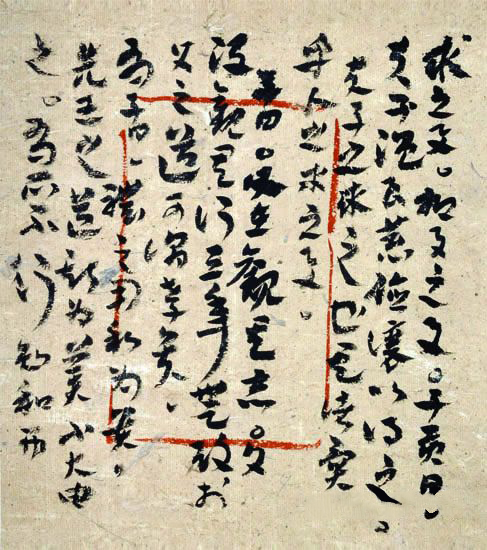 求之與。抑與之與。子貢曰、
夫子溫良恭儉讓以得之。
夫子之求之也其諸異
乎人之求之與。
子曰。父在觀其志。父
沒觀其行三年無改於
父之道可謂孝矣、
有子曰、禮之用和為貴、
先王之道斯為美小大由
之。有所不行知和而